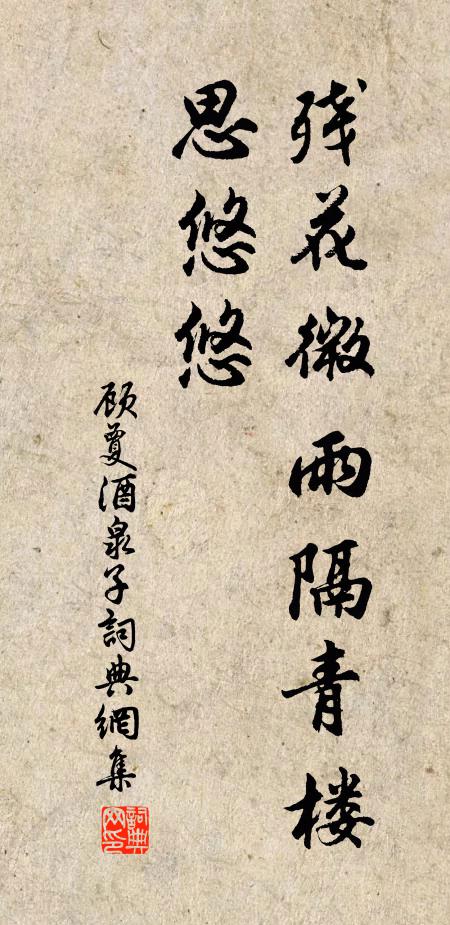 残花微雨隔青楼
思悠悠
顾夐酒泉子詞典網集
詞典
网印